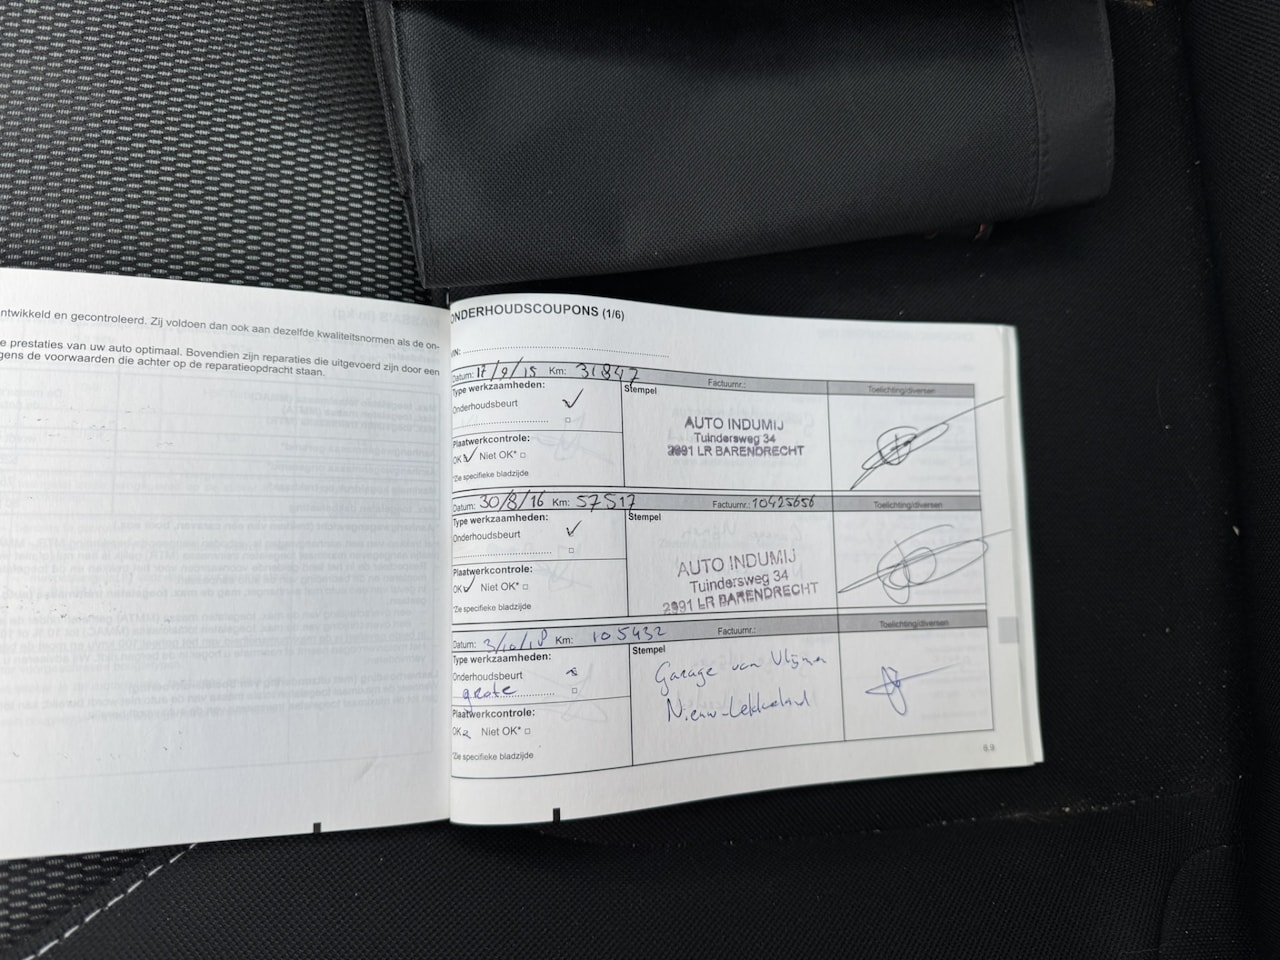 ntwikkeld en gecontroleerd. Zij voldoen dan ook aan dezelfde kwaliteitsnormen als de on-
e prestaties van uw auto optimaal. Bovendien zijn reparaties die uitgevoerd zijn door een
gens de voorwaarden die achter op de reparatieopdracht staan.
ONDERHOUDSCOUPONS (1/6)
VIN:
Datum: 17/9/15 Km: 31847 Factuurnr.: Toelichting/diversen
Type werkzaamheden:
Onderhoudsbeurt
Stempel
AUTO INDUMIJ
Tuindersweg 34
2991 LR BARENDRECHT
Plaatwerkcontrole:
OK Niet OK*
*Zie specifieke bladzijde
Datum: 30/8/16 Km: 57517 Factuurnr.: 10425656 Toelichting/diversen
Type werkzaamheden:
Onderhoudsbeurt
Stempel
AUTO INDUMIJ
Tuindersweg 34
2991 LR BARENDRECHT
Plaatwerkcontrole:
OK Niet OK*
*Zie specifieke bladzijde
Datum: 3/10/18 Km: 105432 Factuurnr.: Toelichting/diversen
Type werkzaamheden:
Onderhoudsbeurt
grote
Stempel
Garage van Vlijmen
Nieuw-Lekkerland
Plaatwerkcontrole:
OK Niet OK*
*Zie specifieke bladzijde